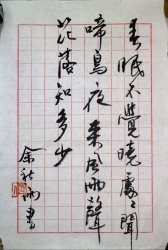 春眠不覺曉處々聞
啼鳥夜來風雨聲
花落知多少
余秋雨書